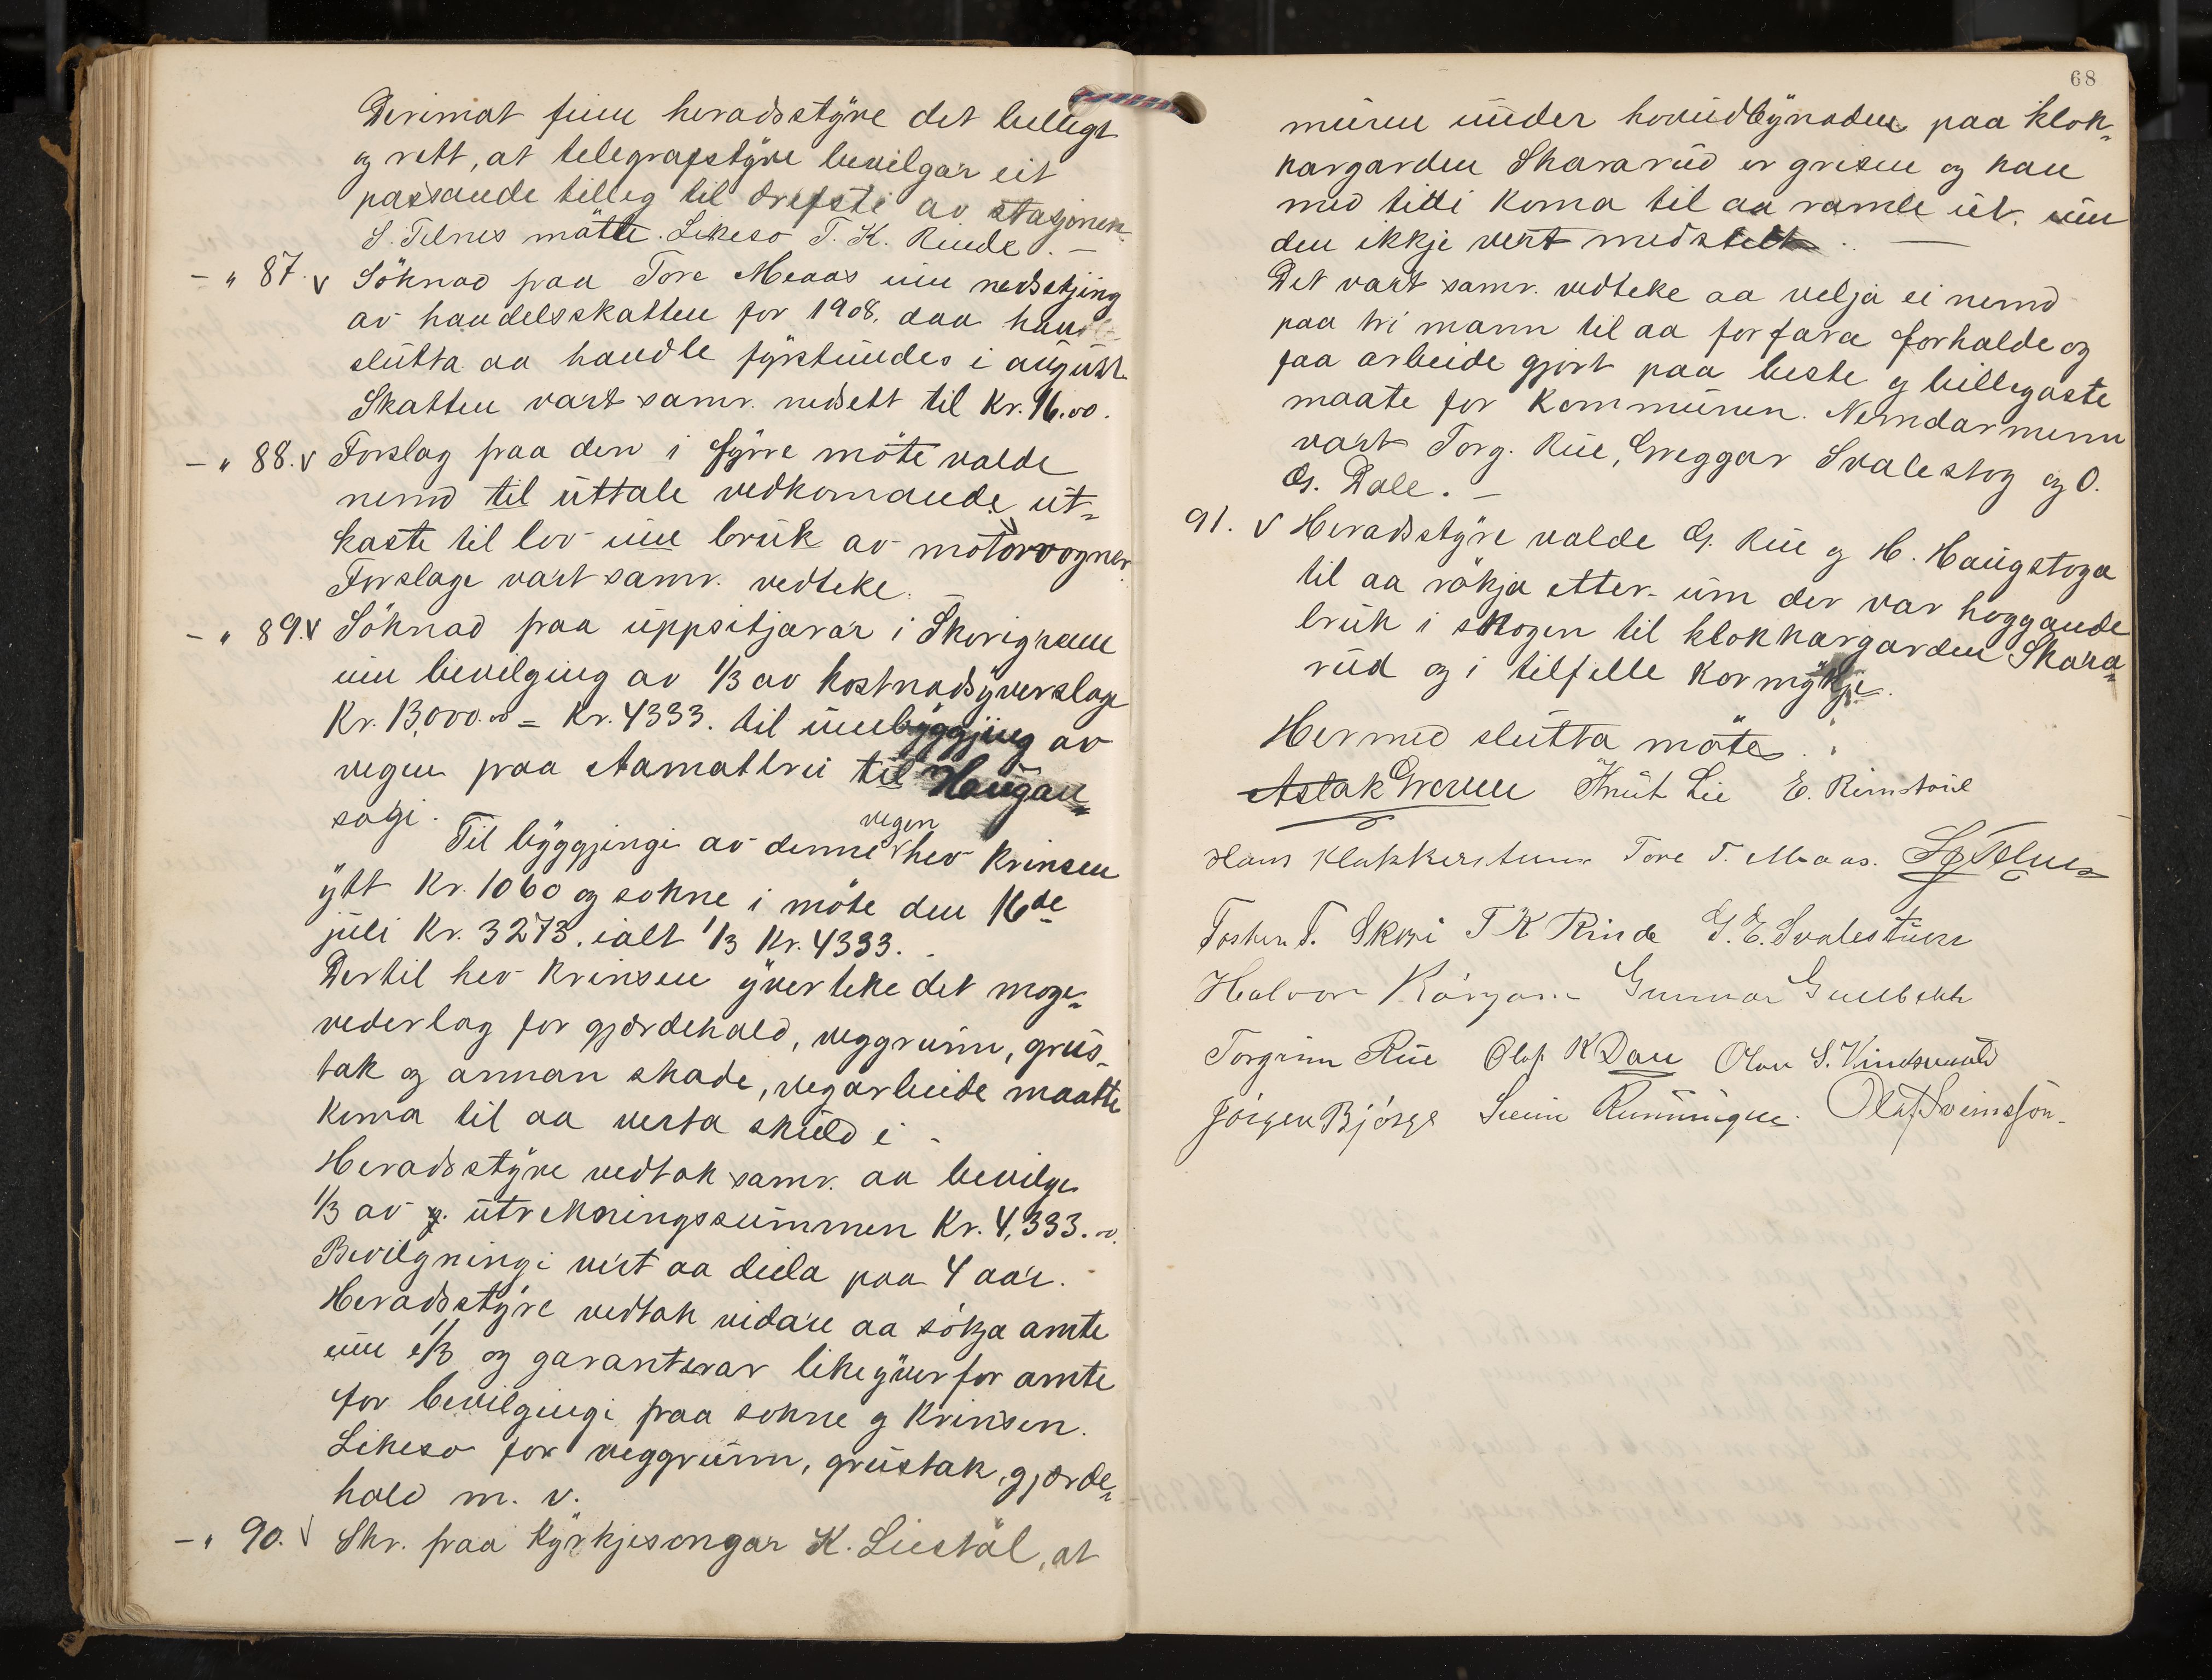 Derimot finn heradsstýre det billegt
og rett, at telegrafstýre bevilgar eit
passande tilleg til drifsti av stasjonen.
S. Telnes mötte. Likeso T. K. Rinde. –
– „ 87. v Söknad fraa Tore Meaas um nedsetjing
av handelsskatten for 1908, daa han
slutta aa handle fýrstundes i august
Skatten vart samr. nedsett til Kr. 16.00.
– „ 88. v Forslag fraa den i fýrre möte valde
nemd til uttale vedkomande ut-
kaste til lov um bruk av motorvogner.
Forslage vart samr. vedteke.
– „ 89. v Söknad fraa uppsitjarar i Skorigrenn
um bevilging av 1/3 av kostnadsýverslage
Kr. 13,000.00 = Kr. 4333. til umbýggjing av
vegen fraa Aamotbrui til Haugan-
sagi.
Til býggjingi av denne vegen hev krinsen
ýtt Kr. 1060 og sokne i möte den 16de
juli Kr. 3273. ialt 1/3 Kr. 4333.
Dertil hev krinsen ýverteke det moge-
vederlag for gjördehald, veggrunn, grus-
tak og annan skade, vegarbeide maatte
koma til aa verta skuld i –
Heradsstýre vedtok samr. aa bevilge
1/3 av utrekningssummen Kr. 4,333.00.
Bevilgningi vert aa deila paa 4 aar.
Heradsstýre vedtok vidare aa sökja amte
um 1/3 og garanterar likeýver for amte
for bevilgingi fraa sokne og krinsen.
Likeso for veggrunn, grustak, gjörde-
hald m. v.
– „ 90. v Skr. fraa Kýrkjesongar K. Liestöl, at
68
muren under hovudbýnaden paa klok-
kargarden Skararud er grisen og kan
med tidi koma til aa ramle ut, um
den ikkje vert medstelt. –
Det vart samr. vedteke aa velja ei nemd
paa tri mann til aa forfara forholde og
faa arbeide gjort paa beste og billegaste
maate for kommunen. Nemdarmenn
vart Torg. Rue, Greggar Svalestog og O.
G. Dale. –
91. v Heradsstýre valde G. Rue og H. Haugstoga
til aa rökja etter um der var hoggande
bruk i skogen til klokkargarden Skara-
rud og i tilfelle kor mýkje.
Hermed slutta möte.
Aslak Graver Knut Lie E. Rimstoul
Hans Klokkerstuen Tore T. Meaas. S. Telnes
Torsten T. Skori T K Rinde G. E. Svalestuen
Halvor Gunnar Gulbekk
Torgrim Rue Olaf K Dale Olav S.
Jörgen Björge Svein Olaf Sveinsson